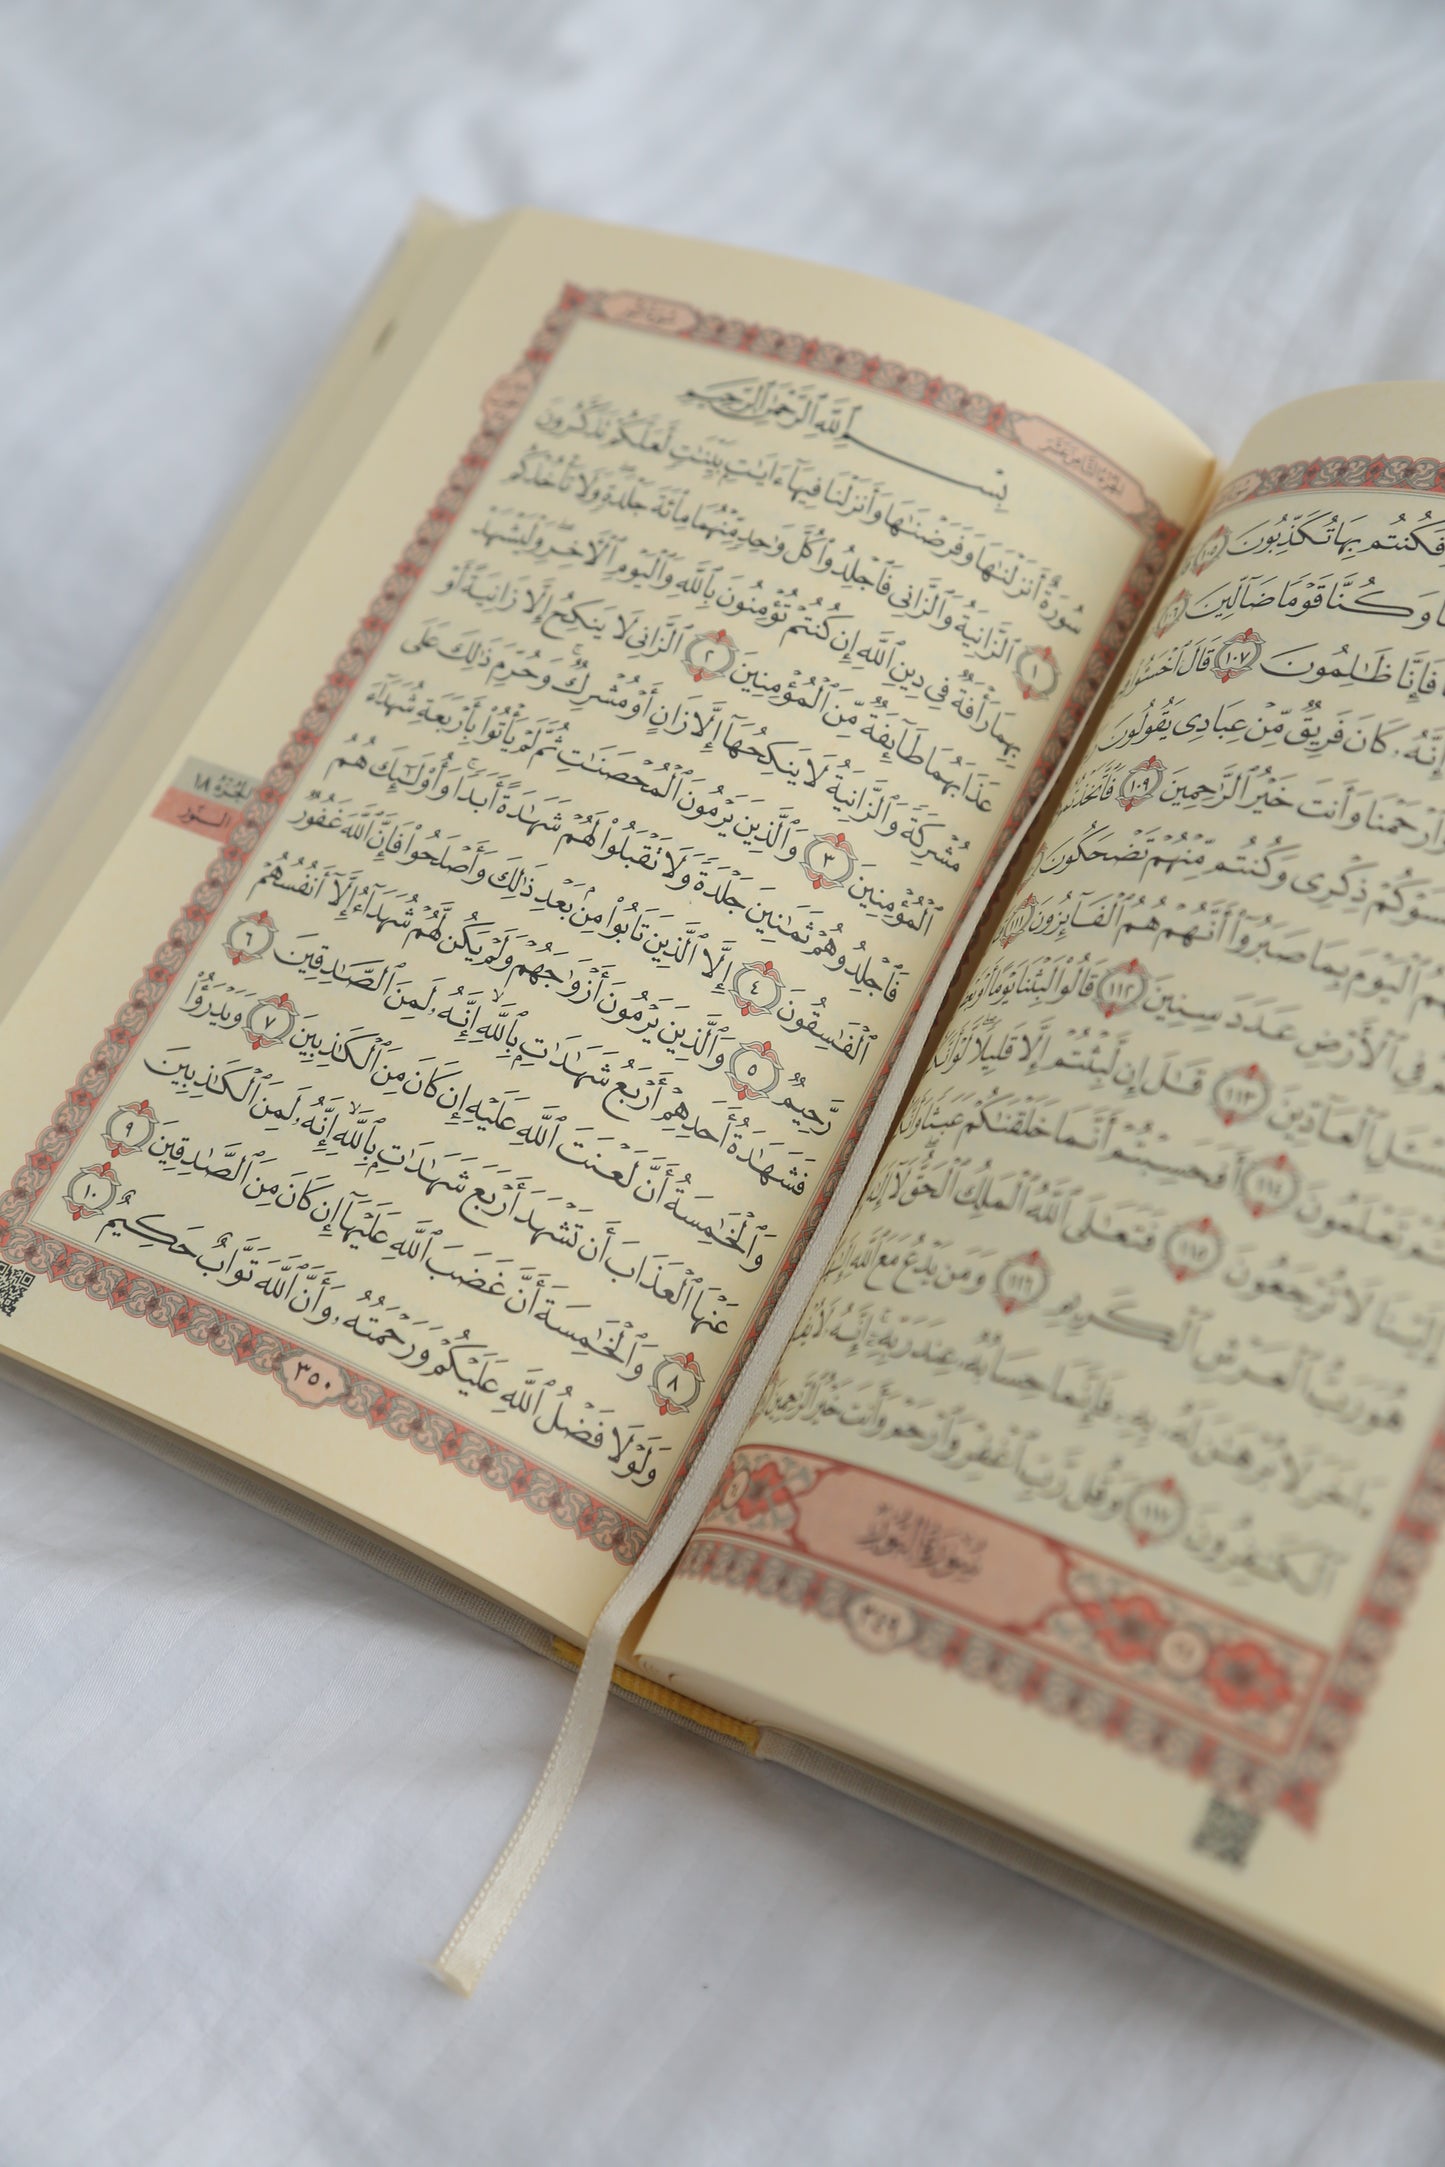 فَكُنتُم بِهَا تُكَذِّبُونَ ١٠٥
وَكُنَّا قَوْمًا ضَآلِّينَ ١٠٦
فَإِنَّا ظَٰلِمُونَ ١٠٧ قَالَ ٱخْسَـُٔوا۟
إِنَّهُۥ كَانَ فَرِيقٌ مِّنْ عِبَادِى يَقُولُونَ
وَٱرْحَمْنَا وَأَنتَ خَيْرُ ٱلرَّٰحِمِينَ ١٠٩ فَٱتَّخَذْتُمُوهُمْ
ذِكْرِى وَكُنتُم مِّنْهُمْ تَضْحَكُونَ
ٱلْيَوْمَ بِمَا صَبَرُوٓا۟ أَنَّهُمْ هُمُ ٱلْفَآئِزُونَ ١١١
فِى ٱلْأَرْضِ عَدَدَ سِنِينَ ١١٢ قَالُوا۟ لَبِثْنَا يَوْمًا أَوْ
ٱلْعَآدِّينَ ١١٣ قَٰلَ إِن لَّبِثْتُمْ إِلَّا قَلِيلًا لَّوْ
تَعْلَمُونَ ١١٤ أَفَحَسِبْتُمْ أَنَّمَا خَلَقْنَٰكُمْ عَبَثًا
إِلَيْنَا لَا تُرْجَعُونَ ١١٥ فَتَعَٰلَى ٱللَّهُ ٱلْمَلِكُ ٱلْحَقُّ لَآ
هُوَ رَبُّ ٱلْعَرْشِ ٱلْكَرِيمِ ١١٦ وَمَن يَدْعُ مَعَ ٱللَّهِ
ءَاخَرَ لَا بُرْهَٰنَ لَهُۥ بِهِۦ فَإِنَّمَا حِسَابُهُۥ عِندَ رَبِّهِۦٓ إِنَّهُۥ لَا
ٱلْكَٰفِرُونَ ١١٧ وَقُل رَّبِّ ٱغْفِرْ وَٱرْحَمْ وَأَنتَ خَيْرُ ٱلرَّٰحِمِينَ
سُورَةُ النُّورِ
٣٤٩
الجزء الثامن عشر
بِسْمِ ٱللَّهِ ٱلرَّحْمَٰنِ ٱلرَّحِيمِ
سُورَةٌ أَنزَلْنَٰهَا وَفَرَضْنَٰهَا وَأَنزَلْنَا فِيهَآ ءَايَٰتٍۭ بَيِّنَٰتٍ لَّعَلَّكُمْ تَذَكَّرُونَ
١ ٱلزَّانِيَةُ وَٱلزَّانِى فَٱجْلِدُوا۟ كُلَّ وَٰحِدٍ مِّنْهُمَا مِا۟ئَةَ جَلْدَةٍ وَلَا تَأْخُذْكُم
بِهِمَا رَأْفَةٌ فِى دِينِ ٱللَّهِ إِن كُنتُمْ تُؤْمِنُونَ بِٱللَّهِ وَٱلْيَوْمِ ٱلْءَاخِرِ وَلْيَشْهَدْ
عَذَابَهُمَا طَآئِفَةٌ مِّنَ ٱلْمُؤْمِنِينَ ٢ ٱلزَّانِى لَا يَنكِحُ إِلَّا زَانِيَةً أَوْ
مُشْرِكَةً وَٱلزَّانِيَةُ لَا يَنكِحُهَآ إِلَّا زَانٍ أَوْ مُشْرِكٌ وَحُرِّمَ ذَٰلِكَ عَلَى
ٱلْمُؤْمِنِينَ ٣ وَٱلَّذِينَ يَرْمُونَ ٱلْمُحْصَنَٰتِ ثُمَّ لَمْ يَأْتُوا۟ بِأَرْبَعَةِ شُهَدَآءَ
فَٱجْلِدُوهُمْ ثَمَٰنِينَ جَلْدَةً وَلَا تَقْبَلُوا۟ لَهُمْ شَهَٰدَةً أَبَدًا وَأُو۟لَٰٓئِكَ هُمُ
ٱلْفَٰسِقُونَ ٤ إِلَّا ٱلَّذِينَ تَابُوا۟ مِنۢ بَعْدِ ذَٰلِكَ وَأَصْلَحُوا۟ فَإِنَّ ٱللَّهَ غَفُورٌ
رَّحِيمٌ ٥ وَٱلَّذِينَ يَرْمُونَ أَزْوَٰجَهُمْ وَلَمْ يَكُن لَّهُمْ شُهَدَآءُ إِلَّآ أَنفُسُهُمْ
فَشَهَٰدَةُ أَحَدِهِمْ أَرْبَعُ شَهَٰدَٰتٍۭ بِٱللَّهِ إِنَّهُۥ لَمِنَ ٱلصَّٰدِقِينَ ٦
وَٱلْخَٰمِسَةُ أَنَّ لَعْنَتَ ٱللَّهِ عَلَيْهِ إِن كَانَ مِنَ ٱلْكَٰذِبِينَ ٧ وَيَدْرَؤُا۟
عَنْهَا ٱلْعَذَابَ أَن تَشْهَدَ أَرْبَعَ شَهَٰدَٰتٍۭ بِٱللَّهِ إِنَّهُۥ لَمِنَ ٱلْكَٰذِبِينَ
٨ وَٱلْخَٰمِسَةَ أَنَّ غَضَبَ ٱللَّهِ عَلَيْهَآ إِن كَانَ مِنَ ٱلصَّٰدِقِينَ ٩
وَلَوْلَا فَضْلُ ٱللَّهِ عَلَيْكُمْ وَرَحْمَتُهُۥ وَأَنَّ ٱللَّهَ تَوَّابٌ حَكِيمٌ ١٠
الجُزْءُ ١٨
النُّور
٣٥٠